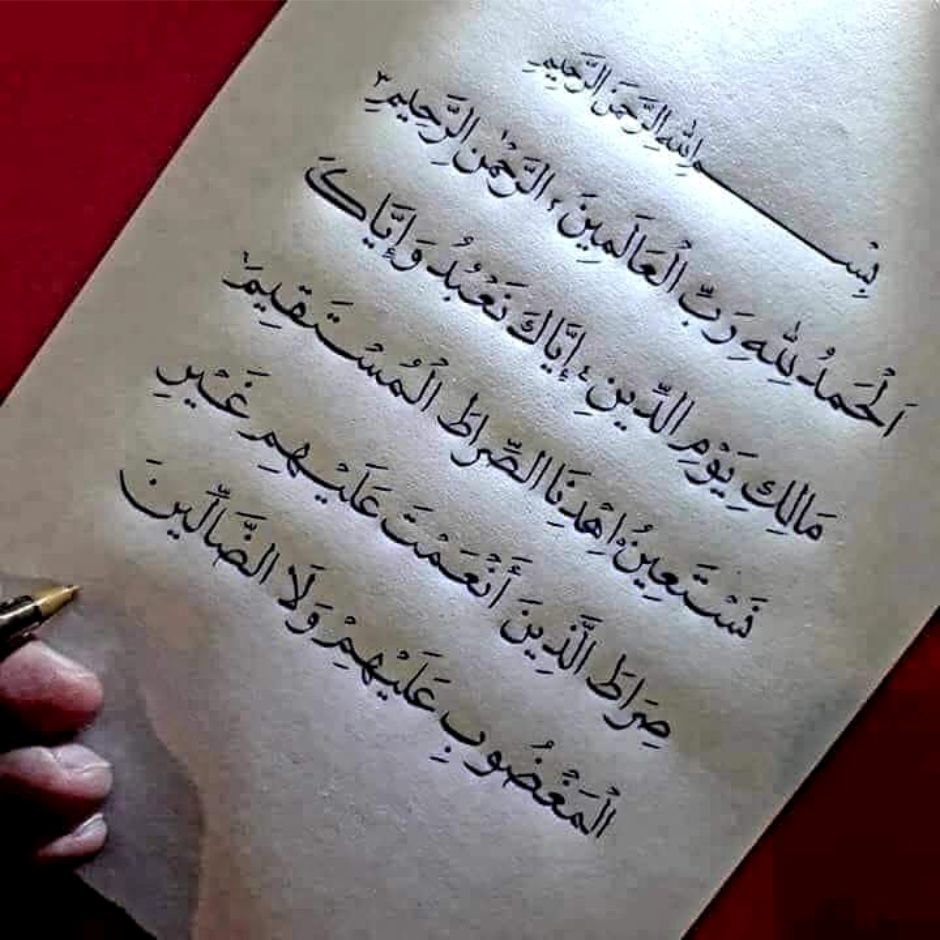 بِسْمِ اللهِ الرَّحْمَنِ الرَّحِيمِ
اَلْحَمْدُ لِلهِ رَبِّ الْعَالَمِينَ ٢ الرَّحْمٰنِ الرَّحِيمِ ٣
مَالِكِ يَوْمِ الدِّينِ ٤ إِيَّاكَ نَعْبُدُ وَإِيَّاكَ
نَسْتَعِينُ ٥ اِهْدِنَا الصِّرَاطَ الْمُسْتَقِيمَ ٦
صِرَاطَ الَّذِينَ أَنْعَمْتَ عَلَيْهِمْ غَيْرِ
الْمَغْضُوبِ عَلَيْهِمْ وَلَا الضَّالِّينَ